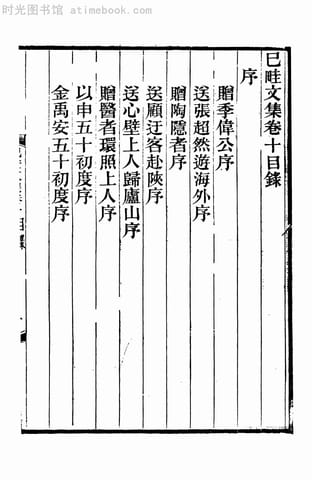 时光图书馆 atimebook.com
巳畦文集卷十目錄
序
贈季偉公序
送張超然遊海外序
贈陶隱者序
送顧迂客赴陝序
送心壁上人歸廬山序
贈醫者環照上人序
以申五十初度序
金禹安五十初度序